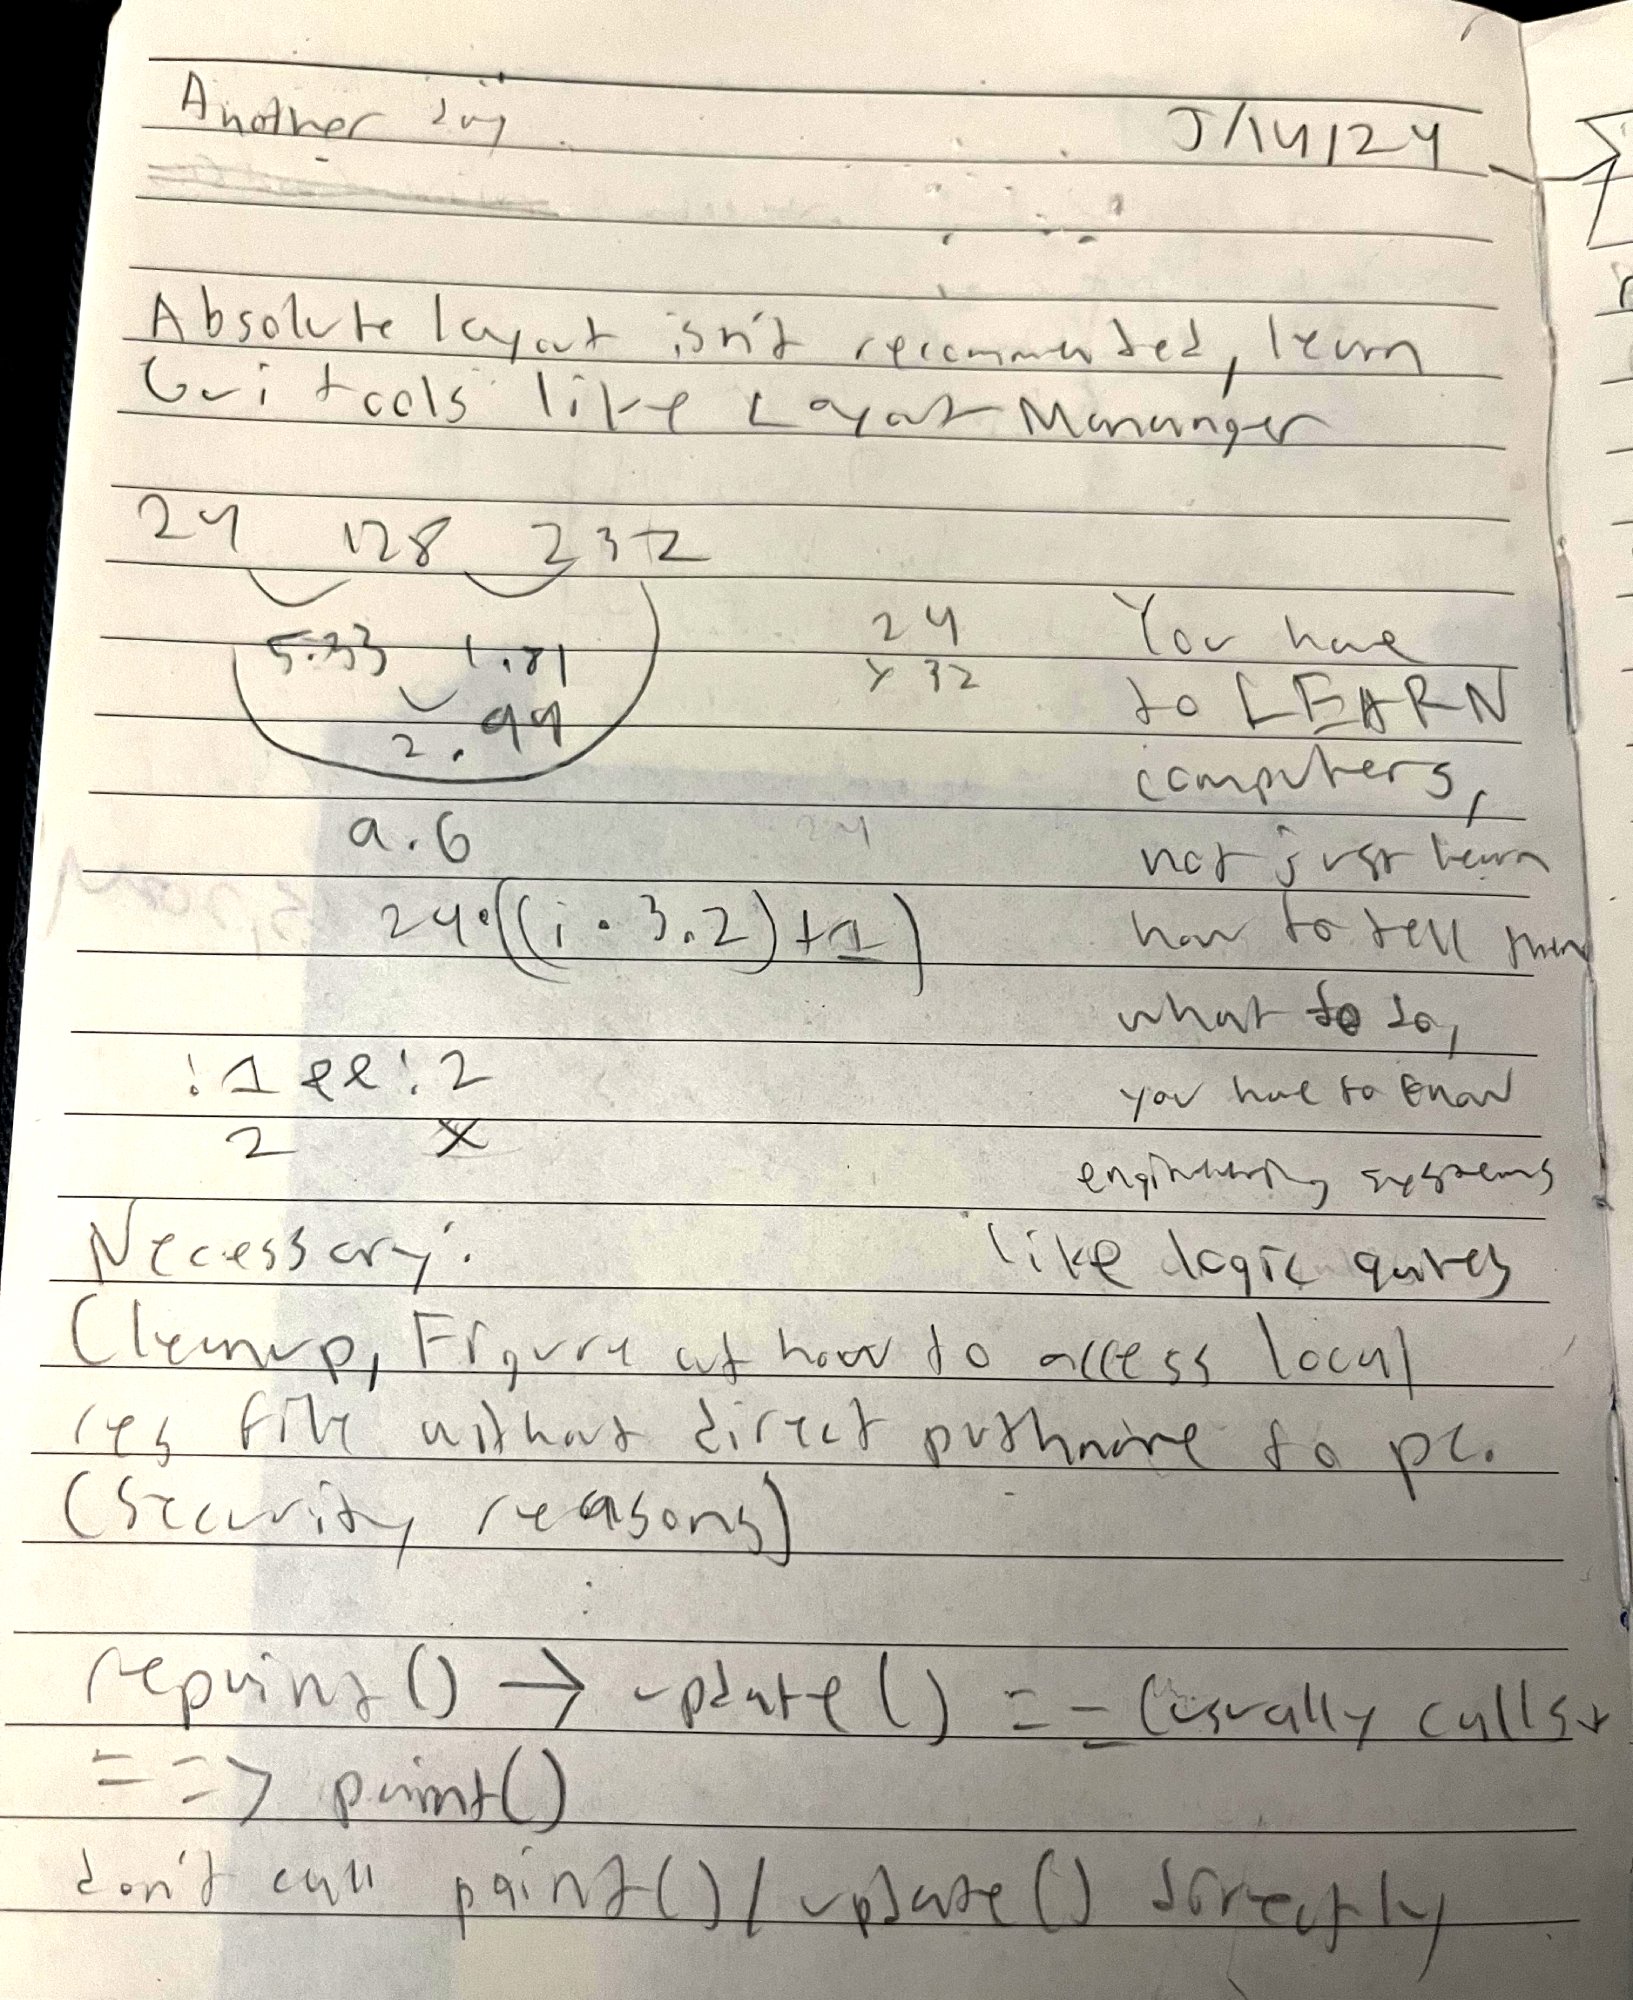 Another day
5/14/24
Absolute layout isn't recommended, learn
Gui tools like Layout Mananger
24 128 232
5.33 1.81
2.94
9.6
24
x 32
24·((i · 3.2) + 1)
:1 ee :2
2 x
You have
to LEARN
computers,
not just learn
how to tell them
what to do,
you have to know
engineering systems
like logic gates
Necessary:
Cleanup, Figure out how to access local
res file without direct pathname to pc.
(Security reasons)
repaint() → update() == (usually calls
==> paint()
don't call paint() / update() directly